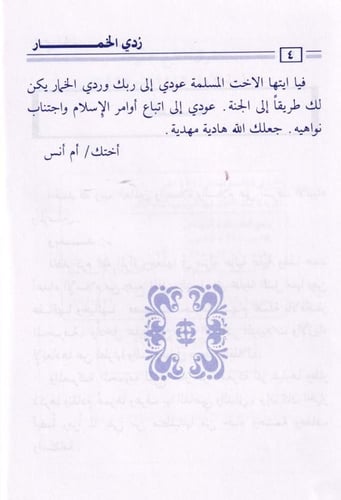 ردي الخمـــــــار
٤
فيا ايتها الاخت المسلمة عودي إلى ربك وردي الخمار يكن
لك طريقاً إلى الجنة. عودي إلى اتباع أوامر الإسلام واجتناب
نواهيه. جعلك الله هادية مهدية.
أختك/ أم أنس